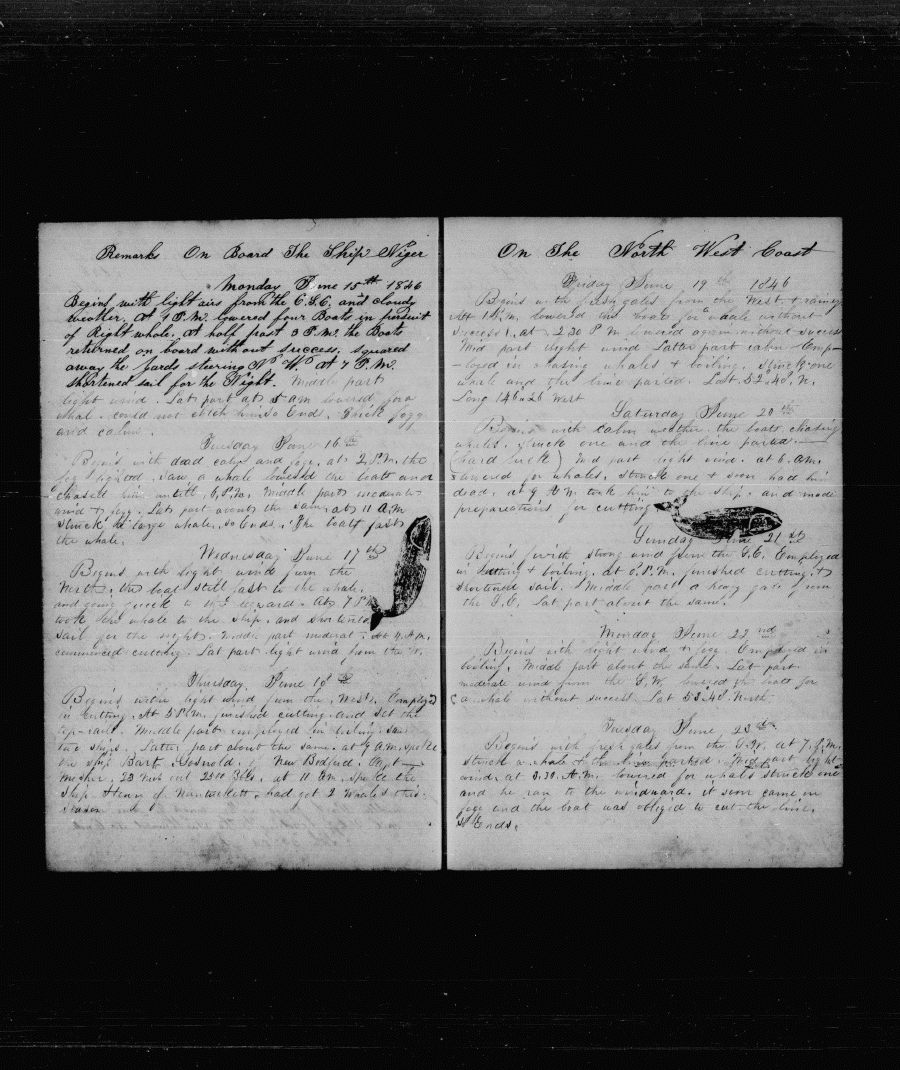 Remarks On Board The Ship Niger
Monday June 15th 1846
Begins with light airs from the E.S.E. and cloudy
weather. At 1 P.M. lowered four Boats in pursuit
of Right whale. at half past 3 P.M. the Boats
returned on board without success. squared
away the yards steering N W. At 7 P.M.
shortened sail for the Night. Middle part
light wind. Lat part at 5 am lowered for a
whal. could not catch him So Ends. thick fogg
and calm.
Tuesday June 16th
Begins with dead calm and fog. at 2 P.M. the
fog lighted. saw a whale lowered the boats and
chased him untill 6 P.M. Middle parts moderate
wind & fogg. Lat part about the same. at 11 A.M
struck a large whale. So Ends. The boat fast
the whale.
Wednesday June 17th
Begins with light wind from the
North. the boat still fast to the whale.
and going quick to leeward. At 7 P.M.
took the whale to the ship. and shortened
sail for the night. Middle part moderat. At 4 A.M.
commenced cutting. Lat part light wind from the W.
Thursday June 18th
Begins with light wind from the West. Employed
in Cutting. At 5 P.M. finished cutting. and set the
top-sails. Middle part employed in boiling. saw
two ships. Latter part about the same. at 9 A.M. spoke
the ship Bart. Gosnold. of New Bedford. Capt
Mosher. 23 Mos out 2300 Bbls. at 11 Am. spoke the
ship Henry of Nantuckett. had got 2 whales this
season
On The North West Coast
Friday June 19th 1846
Begins with fresh gales from the West & rainey
At 1 P.M. lowered the boats for a whale without
success. at 2.30 P M lowered again without success
Mid part light wind Latter part calm Emp-
-loyed in chasing whales & boiling. struck one
whale and the line parted. Lat 52.40. N.
Long 146.26 West
Saturday June 20th
Begins with calm weather. the boats chasing
whales. struck one and the line parted.
(hard luck) Mid part light wind. at 6. a.m.
lowered for whales. struck one & soon had him
dead. at 9 A M. took him to the ship. and made
preparations for cutting
Sunday June 21st
Begins with strong wind from the S.E. Employed
in Cutting & boiling. at 8 P.M. finished cutting &
shortened sail. Middle part a heavy gale from
the S.E. Lat part about the same.
Monday June 22nd
Begins with light wind & fogg. Employed in
boiling. Middle part about the same. Lat part
moderate wind from the S.W. lowered the boats for
a whale without success. Lat 53.40 North
Tuesday June 23rd
Begins with fresh gales from the S.W. at 7. P.M.
struck a whale & the line parted. Mid part light
wind. at 3.30. A.M. lowered for whals struck one
and he ran to the windward. it soon came in
fogg and the boat was obliged to cut the line.
So Ends.